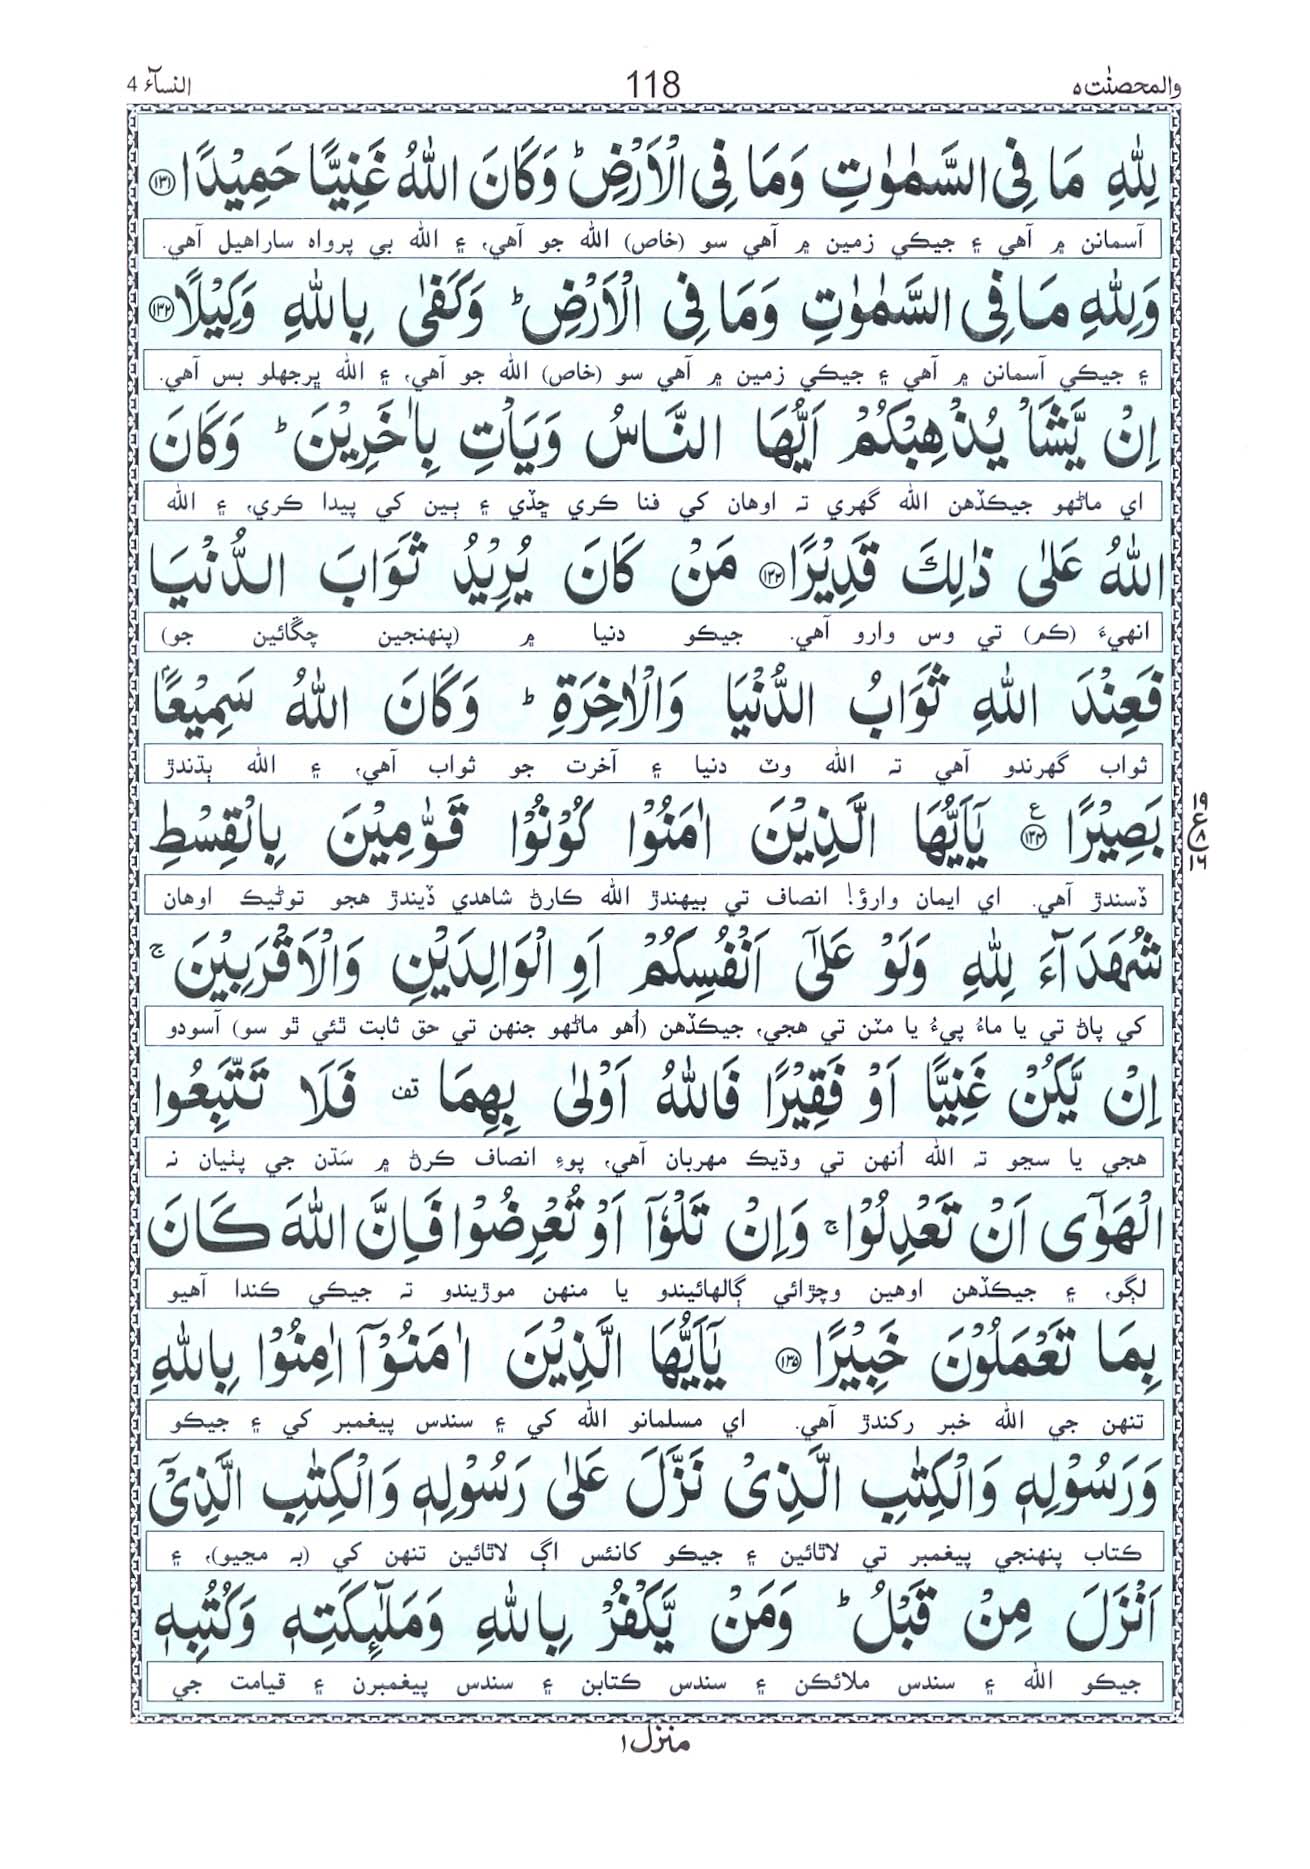 والمحصنٰت ٥ 118 النسآء 4
لِلّٰهِ مَا فِى السَّمٰوٰتِ وَمَا فِى الْاَرْضِ ؕ وَكَانَ اللّٰهُ غَنِيًّا حَمِيْدًا ﴿۱۳۱﴾
آسمانن ۾ آهي ۽ جيڪي زمين ۾ آهي سو (خاص) الله جو آهي، ۽ الله بي پرواه ساراهيل آهي.
وَلِلّٰهِ مَا فِى السَّمٰوٰتِ وَمَا فِى الْاَرْضِ ؕ وَكَفٰى بِاللّٰهِ وَكِيْلًا ﴿۱۳۲﴾
۽ جيڪي آسمانن ۾ آهي ۽ جيڪي زمين ۾ آهي سو (خاص) الله جو آهي، ۽ الله پرجهلو بس آهي.
اِنْ يَّشَاْ يُذْهِبْكُمْ اَيُّهَا النَّاسُ وَيَاْتِ بِاٰخَرِيْنَ ؕ وَكَانَ
اي ماڻهو جيڪڏهن الله گهري ته اوهان کي فنا ڪري ڇڏي ۽ ٻين کي پيدا ڪري، ۽ الله
اللّٰهُ عَلٰى ذٰلِكَ قَدِيْرًا ﴿۱۳۳﴾ مَنْ كَانَ يُرِيْدُ ثَوَابَ الدُّنْيَا
انهيءَ (ڪم) تي وس وارو آهي. جيڪو دنيا ۾ (پنهنجين چڱائين جو)
فَعِنْدَ اللّٰهِ ثَوَابُ الدُّنْيَا وَالْاٰخِرَةِ ؕ وَكَانَ اللّٰهُ سَمِيْعًاۢ
ثواب گهرندو آهي ته الله وٽ دنيا ۽ آخرت جو ثواب آهي، ۽ الله ٻڌندڙ
بَصِيْرًا ﴿۱۳۴﴾ ع يٰۤاَيُّهَا الَّذِيْنَ اٰمَنُوْا كُوْنُوْا قَوّٰمِيْنَ بِالْقِسْطِ
۱۹ ع ۸ ۱۶
ڏسندڙ آهي. اي ايمان وارؤ! انصاف تي بيهندڙ الله ڪارڻ شاهدي ڏيندڙ هجو توڻيڪ اوهان
شُهَدَآءَ لِلّٰهِ وَلَوْ عَلٰٓى اَنْفُسِكُمْ اَوِ الْوَالِدَيْنِ وَالْاَقْرَبِيْنَ ۚ
کي پاڻ تي يا ماءُ پيءُ يا مٽن تي هجي، جيڪڏهن (اُهو ماڻهو جنهن تي حق ثابت ٿئي ٿو سو) آسودو
اِنْ يَّكُنْ غَنِيًّا اَوْ فَقِيْرًا فَاللّٰهُ اَوْلٰى بِهِمَا قف فَلَا تَتَّبِعُوا
هجي يا سڃو ته الله اُنهن تي وڌيڪ مهربان آهي، پوءِ انصاف ڪرڻ ۾ سَڌن جي پٺيان نه
الْهَوٰٓى اَنْ تَعْدِلُوْا ۚ وَاِنْ تَلْوٗۤا اَوْ تُعْرِضُوْا فَاِنَّ اللّٰهَ كَانَ
لڳو، ۽ جيڪڏهن اوهين وچڙائي ڳالهائيندو يا منهن موڙيندو ته جيڪي ڪندا آهيو
بِمَا تَعْمَلُوْنَ خَبِيْرًا ﴿۱۳۵﴾ يٰۤاَيُّهَا الَّذِيْنَ اٰمَنُوْۤا اٰمِنُوْا بِاللّٰهِ
تنهن جي الله خبر رکندڙ آهي. اي مسلمانو الله کي ۽ سندس پيغمبر کي ۽ جيڪو
وَرَسُوْلِهٖ وَالْكِتٰبِ الَّذِىْ نَزَّلَ عَلٰى رَسُوْلِهٖ وَالْكِتٰبِ الَّذِىْۤ
ڪتاب پنهنجي پيغمبر تي لاٿائين ۽ جيڪو کانئس اڳ لاٿائين تنهن کي (به مڃيو)، ۽
اَنْزَلَ مِنْ قَبْلُ ؕ وَمَنْ يَّكْفُرْ بِاللّٰهِ وَمَلٰٓئِكَتِهٖ وَكُتُبِهٖ
جيڪو الله ۽ سندس ملائڪن ۽ سندس ڪتابن ۽ سندس پيغمبرن ۽ قيامت جي
منزل ۱